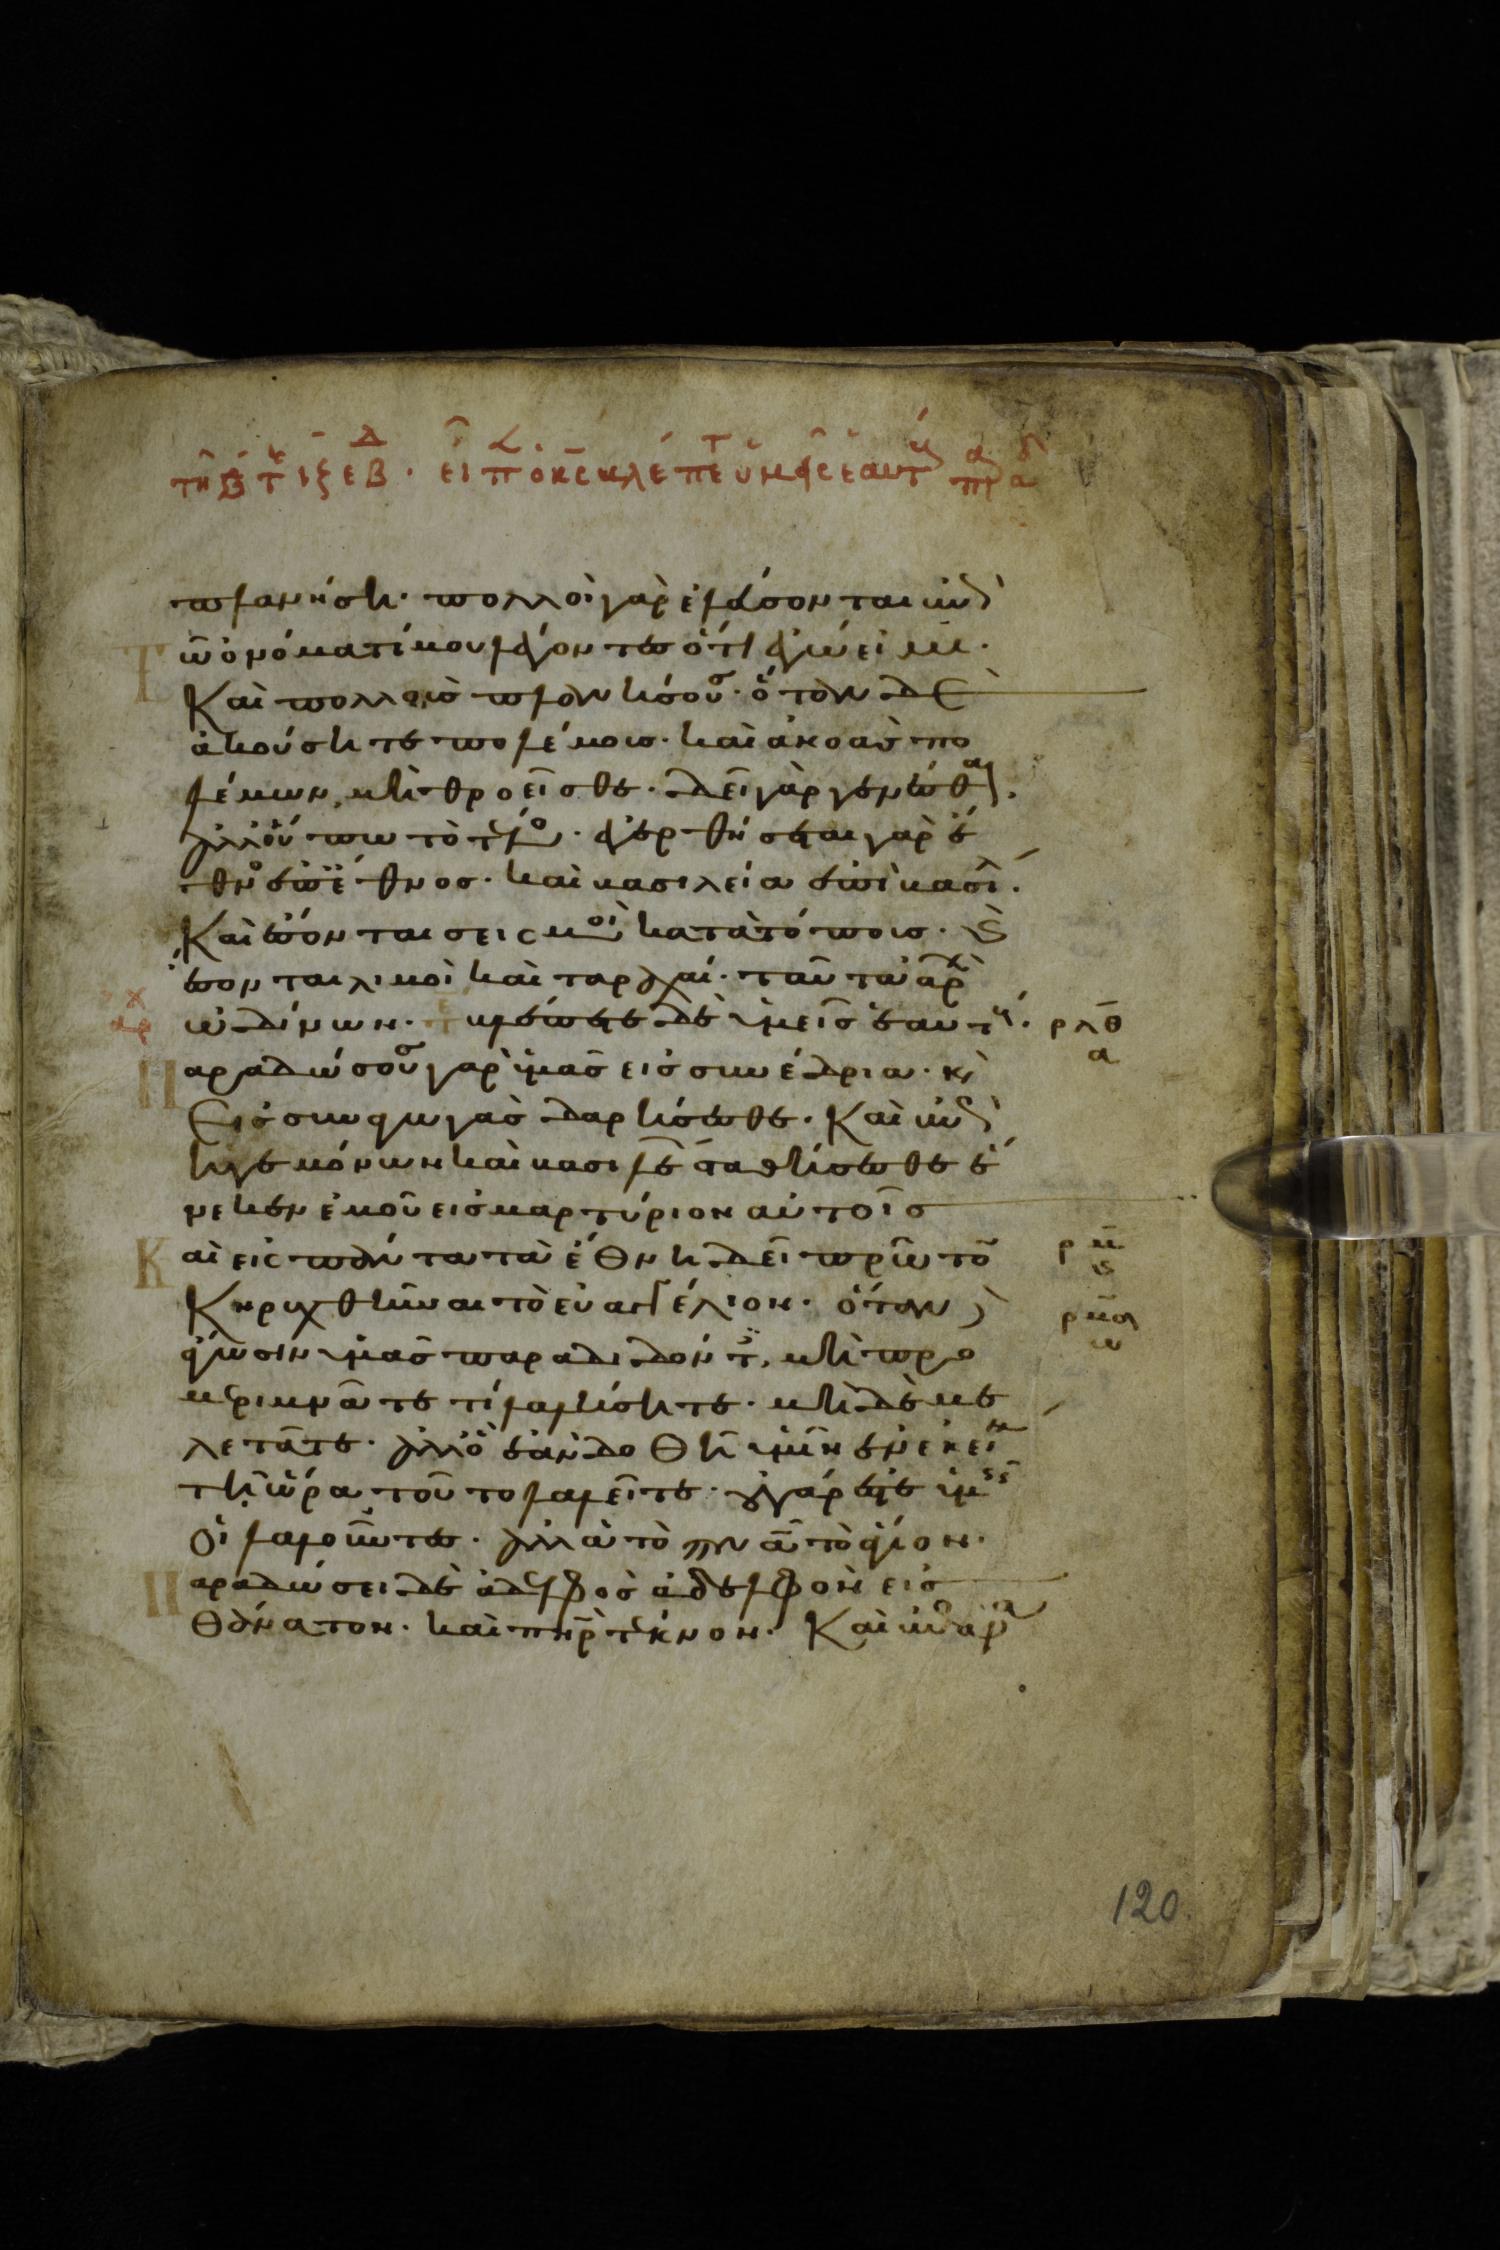 πλανήση· πολλοὶ γὰρ ἐλεύσονται ἐπὶ
τῶ ὀνόματί μου λέγοντες ὅτι ἐγώ εἰμι·
Καὶ πολλοὺς πλανήσου· ὅταν δὲ
ἀκούσητε πολέμους· καὶ ἀκοὰς πο
λέμων, μὴ θροεῖσθε· δεῖ γὰρ γενέσθαι·
ἀλλ' οὔπω τὸ τέλο· ἐγερθήσεται γὰρ ἔ
θνο ἐπὶ ἔθνος· καὶ βασιλεία ἐπὶ βασι·
Καὶ ἔσονται σεισμοὶ κατὰ τόπους· καὶ
ἔσονται λιμοὶ καὶ ταραχαί· ταῦτα ἀρχ
ὠδίνων· βλέπετε δὲ ὑμεῖς ἑαυτ· ρλθ
α
Παραδώσου γὰρ ὑμᾶς εἰς συνέδρια· κὶ
Εἰς συναγωγὰς δαρήσεσθε· Καὶ ἐπὶ
ἡγεμόνων καὶ βασιλε σταθήσεσθε ἕ
νεκεν ἐμοῦ εἰς μαρτύριον αὐτοῖς
Καὶ εἰς πάντα τὰ ἔθνη δεῖ πρῶτο ρμ
ς
Κηρυχθῆναι τὸ εὐαγγέλιον· ὅταν δὲ ρμα
ἄγωσιν ὑμᾶς παραδιδόντ, μὴ προ
μεριμνᾶτε τί λαλήσητε· μὴ δὲ με
λετᾶτε· ἀλλ' ὃ ἐὰν δοθῆ ὑμῖν ἐν ἐκεί
τῆ ὥρα τοῦτο λαλεῖτε· οὐ γάρ ἐστε ὑμεῖς
Οἱ λαλοῦντες· ἀλλὰ τὸ πνα τὸ ἅγιον·
Παραδώσει δὲ ἀδελφὸς ἀδελφὸν εἰς
Θάνατον· καὶ πηρ τέκνον· Καὶ ἐπα
120